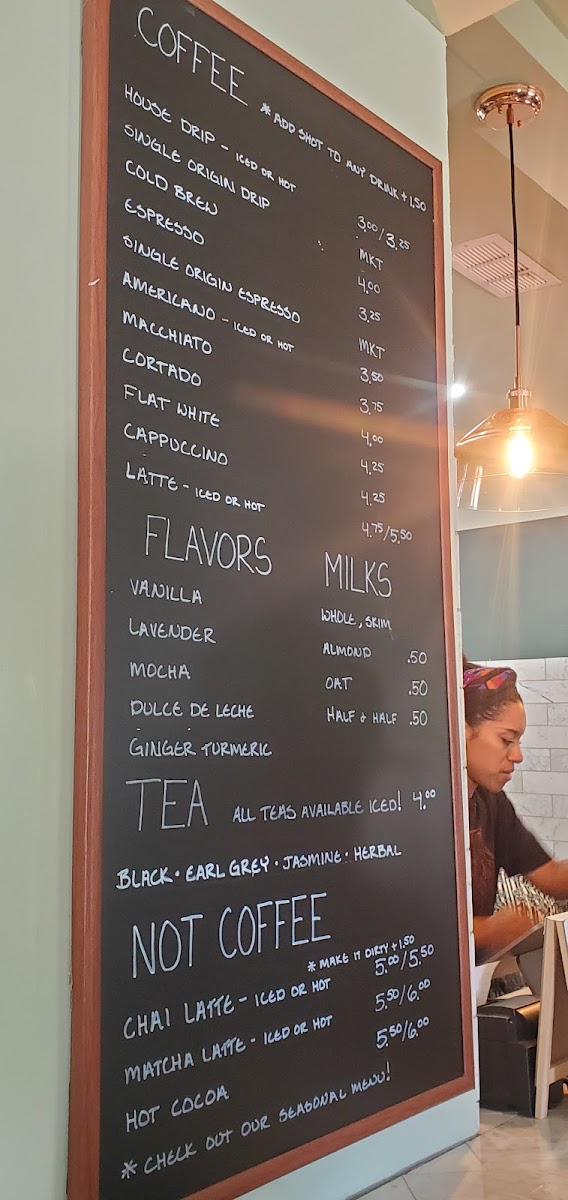 COFFEE * ADD SHOT TO ANY DRINK + 1.50
HOUSE DRIP - ICED OR HOT 3.00/3.25
SINGLE ORIGIN DRIP MKT
COLD BREW 4.00
ESPRESSO 3.25
SINGLE ORIGIN ESPRESSO MKT
AMERICANO - ICED OR HOT 3.50
MACCHIATO 3.75
CORTADO 4.00
FLAT WHITE 4.25
CAPPUCCINO 4.25
LATTE - ICED OR HOT 4.75/5.50
FLAVORS
VANILLA
LAVENDER
MOCHA
DULCE DE LECHE
GINGER TURMERIC
MILKS
WHOLE, SKIM
ALMOND .50
OAT .50
HALF & HALF .50
TEA ALL TEAS AVAILABLE ICED! 4.00
BLACK • EARL GREY • JASMINE • HERBAL
NOT COFFEE
* MAKE IT DIRTY + 1.50
CHAI LATTE - ICED OR HOT 5.00/5.50
MATCHA LATTE - ICED OR HOT 5.50/6.00
HOT COCOA 5.50/6.00
* CHECK OUT OUR SEASONAL MENU!